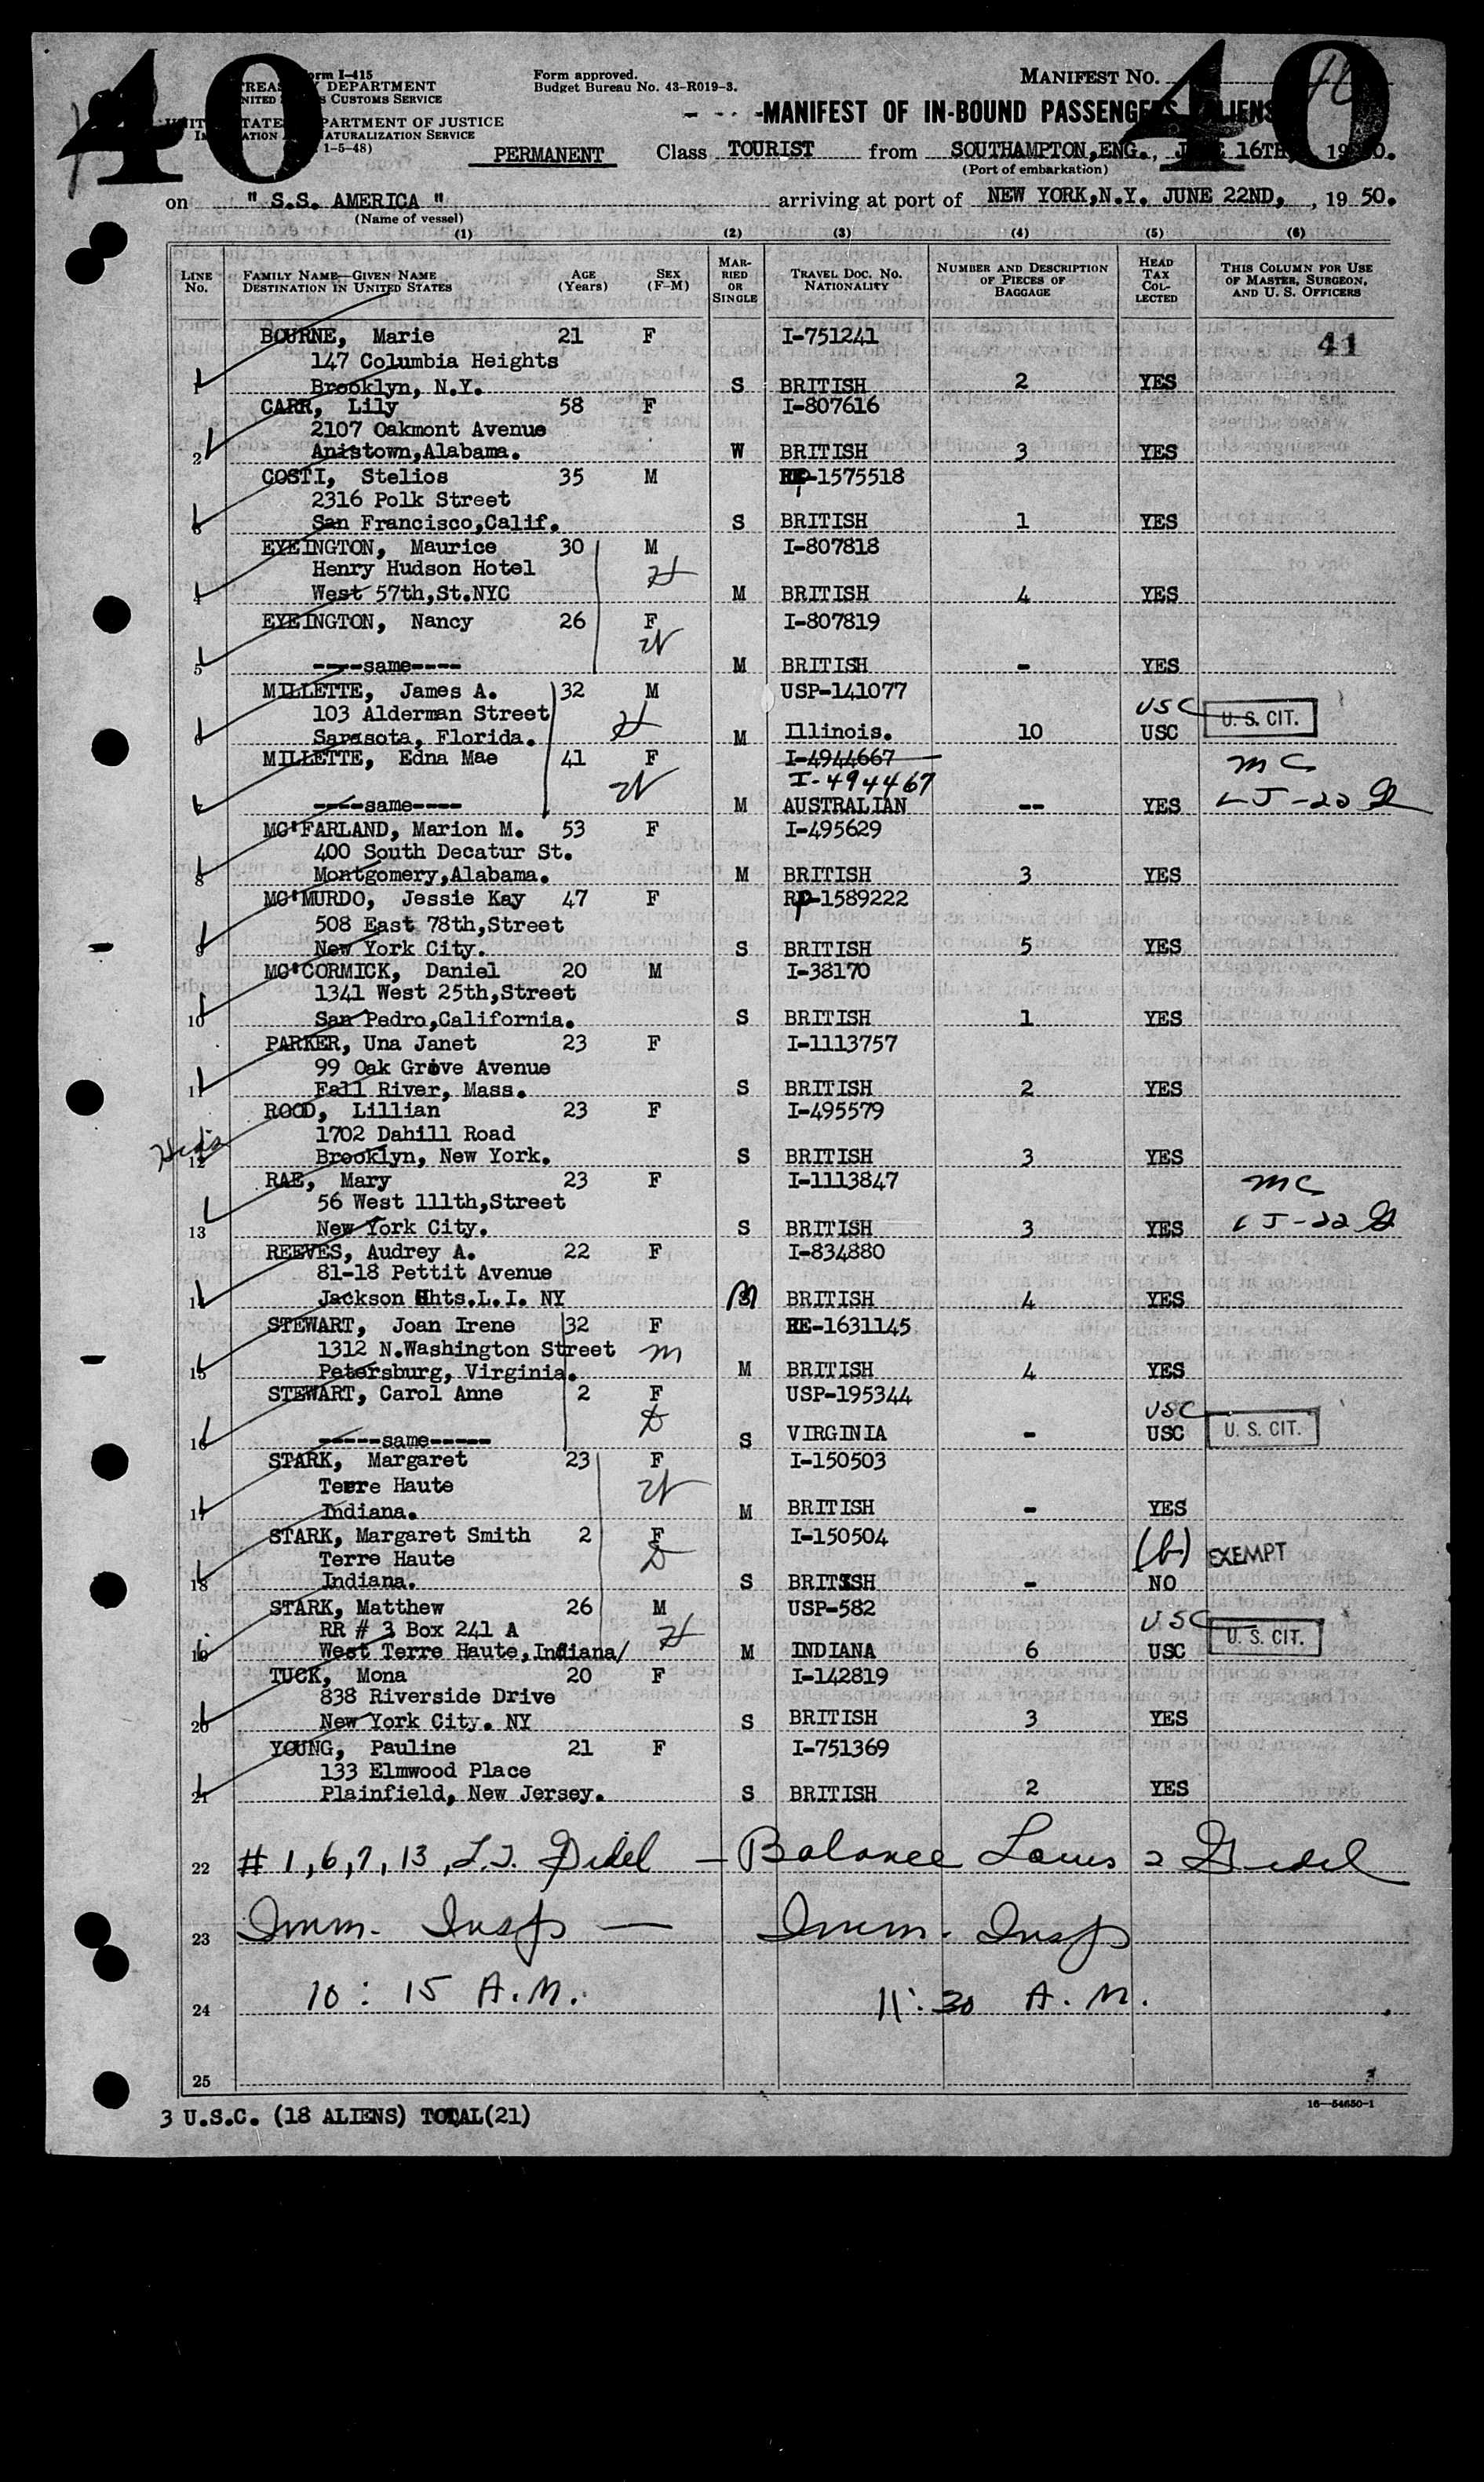 40 40
Form I-415
TREASURY DEPARTMENT
UNITED STATES CUSTOMS SERVICE
UNITED STATES DEPARTMENT OF JUSTICE
IMMIGRATION AND NATURALIZATION SERVICE
1-5-48)
Form approved.
Budget Bureau No. 43-R019-3.
MANIFEST NO.
MANIFEST OF IN-BOUND PASSENGERS (ALIENS
PERMANENT Class TOURIST from SOUTHAMPTON,ENG., JUNE 16TH, 1950.
(Port of embarkation)
on " S.S. AMERICA " arriving at port of NEW YORK,N.Y. JUNE 22ND, , 19 50.
(Name of vessel)
(1) (2) (3) (4) (5) (6)
LINE No. FAMILY NAME—GIVEN NAME DESTINATION IN UNITED STATES AGE (Years) SEX (F-M) MARRIED OR SINGLE TRAVEL DOC. NO. NATIONALITY NUMBER AND DESCRIPTION OF PIECES OF BAGGAGE HEAD TAX COLLECTED THIS COLUMN FOR USE OF MASTER, SURGEON, AND U. S. OFFICERS
BOURNE, Marie 21 F I-751241 41
147 Columbia Heights
1 Brooklyn, N.Y. S BRITISH 2 YES
CARR, Lily 58 F I-807616
2107 Oakmont Avenue
2 Anistown,Alabama. W BRITISH 3 YES
COSTI, Stelios 35 M RP-1575518
2316 Polk Street
3 San Francisco,Calif. S BRITISH 1 YES
EYEINGTON, Maurice 30 M I-807818
Henry Hudson Hotel H
4 West 57th,St.NYC M BRITISH 4 YES
EYEINGTON, Nancy 26 F I-807819
W
5 ----same---- M BRITISH - YES
MILLETTE, James A. 32 M USP-141077
103 Alderman Street H USC U. S. CIT.
6 Sarasota, Florida. M Illinois. 10 USC
MILLETTE, Edna Mae 41 F I-4944667 MC
W I-494467
7 ----same---- M AUSTRALIAN -- YES
MC'FARLAND, Marion M. 53 F I-495629
400 South Decatur St.
8 Montgomery,Alabama. M BRITISH 3 YES
MC'MURDO, Jessie Kay 47 F RP-1589222
508 East 78th,Street
9 New York City. S BRITISH 5 YES
MC'CORMICK, Daniel 20 M I-38170
1341 West 25th,Street
10 San Pedro,California. S BRITISH 1 YES
PARKER, Una Janet 23 F I-1113757
99 Oak Grove Avenue
11 Fall River, Mass. S BRITISH 2 YES
ROOD, Lillian 23 F I-495579
1702 Dahill Road
12 Brooklyn, New York. S BRITISH 3 YES
RAE, Mary 23 F I-1113847 MC
56 West 111th,Street
13 New York City. S BRITISH 3 YES
REEVES, Audrey A. 22 F I-834880
81-18 Pettit Avenue
14 Jackson Hhts.L.I. NY M BRITISH 4 YES
STEWART, Joan Irene 32 F RE-1631145
1312 N.Washington Street M
15 Petersburg, Virginia. M BRITISH 4 YES
STEWART, Carol Anne 2 F USP-195344
D USC U. S. CIT.
16 -----same----- S VIRGINIA - USC
STARK, Margaret 23 F I-150503
Terre Haute W
17 Indiana. M BRITISH - YES
STARK, Margaret Smith 2 F I-150504
Terre Haute D (b) EXEMPT
18 Indiana. S BRITISH - NO
STARK, Matthew 26 M USP-582
RR # 3 Box 241 A H USC U. S. CIT.
19 West Terre Haute,Indiana/ M INDIANA 6 USC
TUCK, Mona 20 F I-142819
838 Riverside Drive
20 New York City. NY S BRITISH 3 YES
YOUNG, Pauline 21 F I-751369
133 Elmwood Place
21 Plainfield, New Jersey. S BRITISH 2 YES
22 # 1,6,7,13, — Balance
23 Imm. Insp — Imm. Insp
24 10: 15 A.M. 11:30 A.M.
25
16—54650-1
3 U.S.C. (18 ALIENS) TOTAL(21)